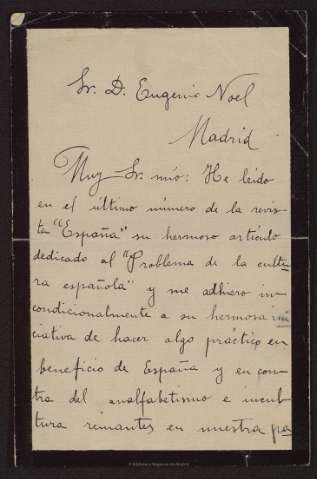 Sr. D. Eugenio Noel
Madrid
Muy Sr. mío: He leído
en el último número de la revis-
ta "España" su hermoso artículo
dedicado al "Problema de la cultu-
ra española" y me adhiero in-
condicionalmente a su hermosa ini
ciativa de hacer algo práctico en
beneficio de España y en con-
tra del analfabetismo e incul-
tura reinantes en nuestra pa